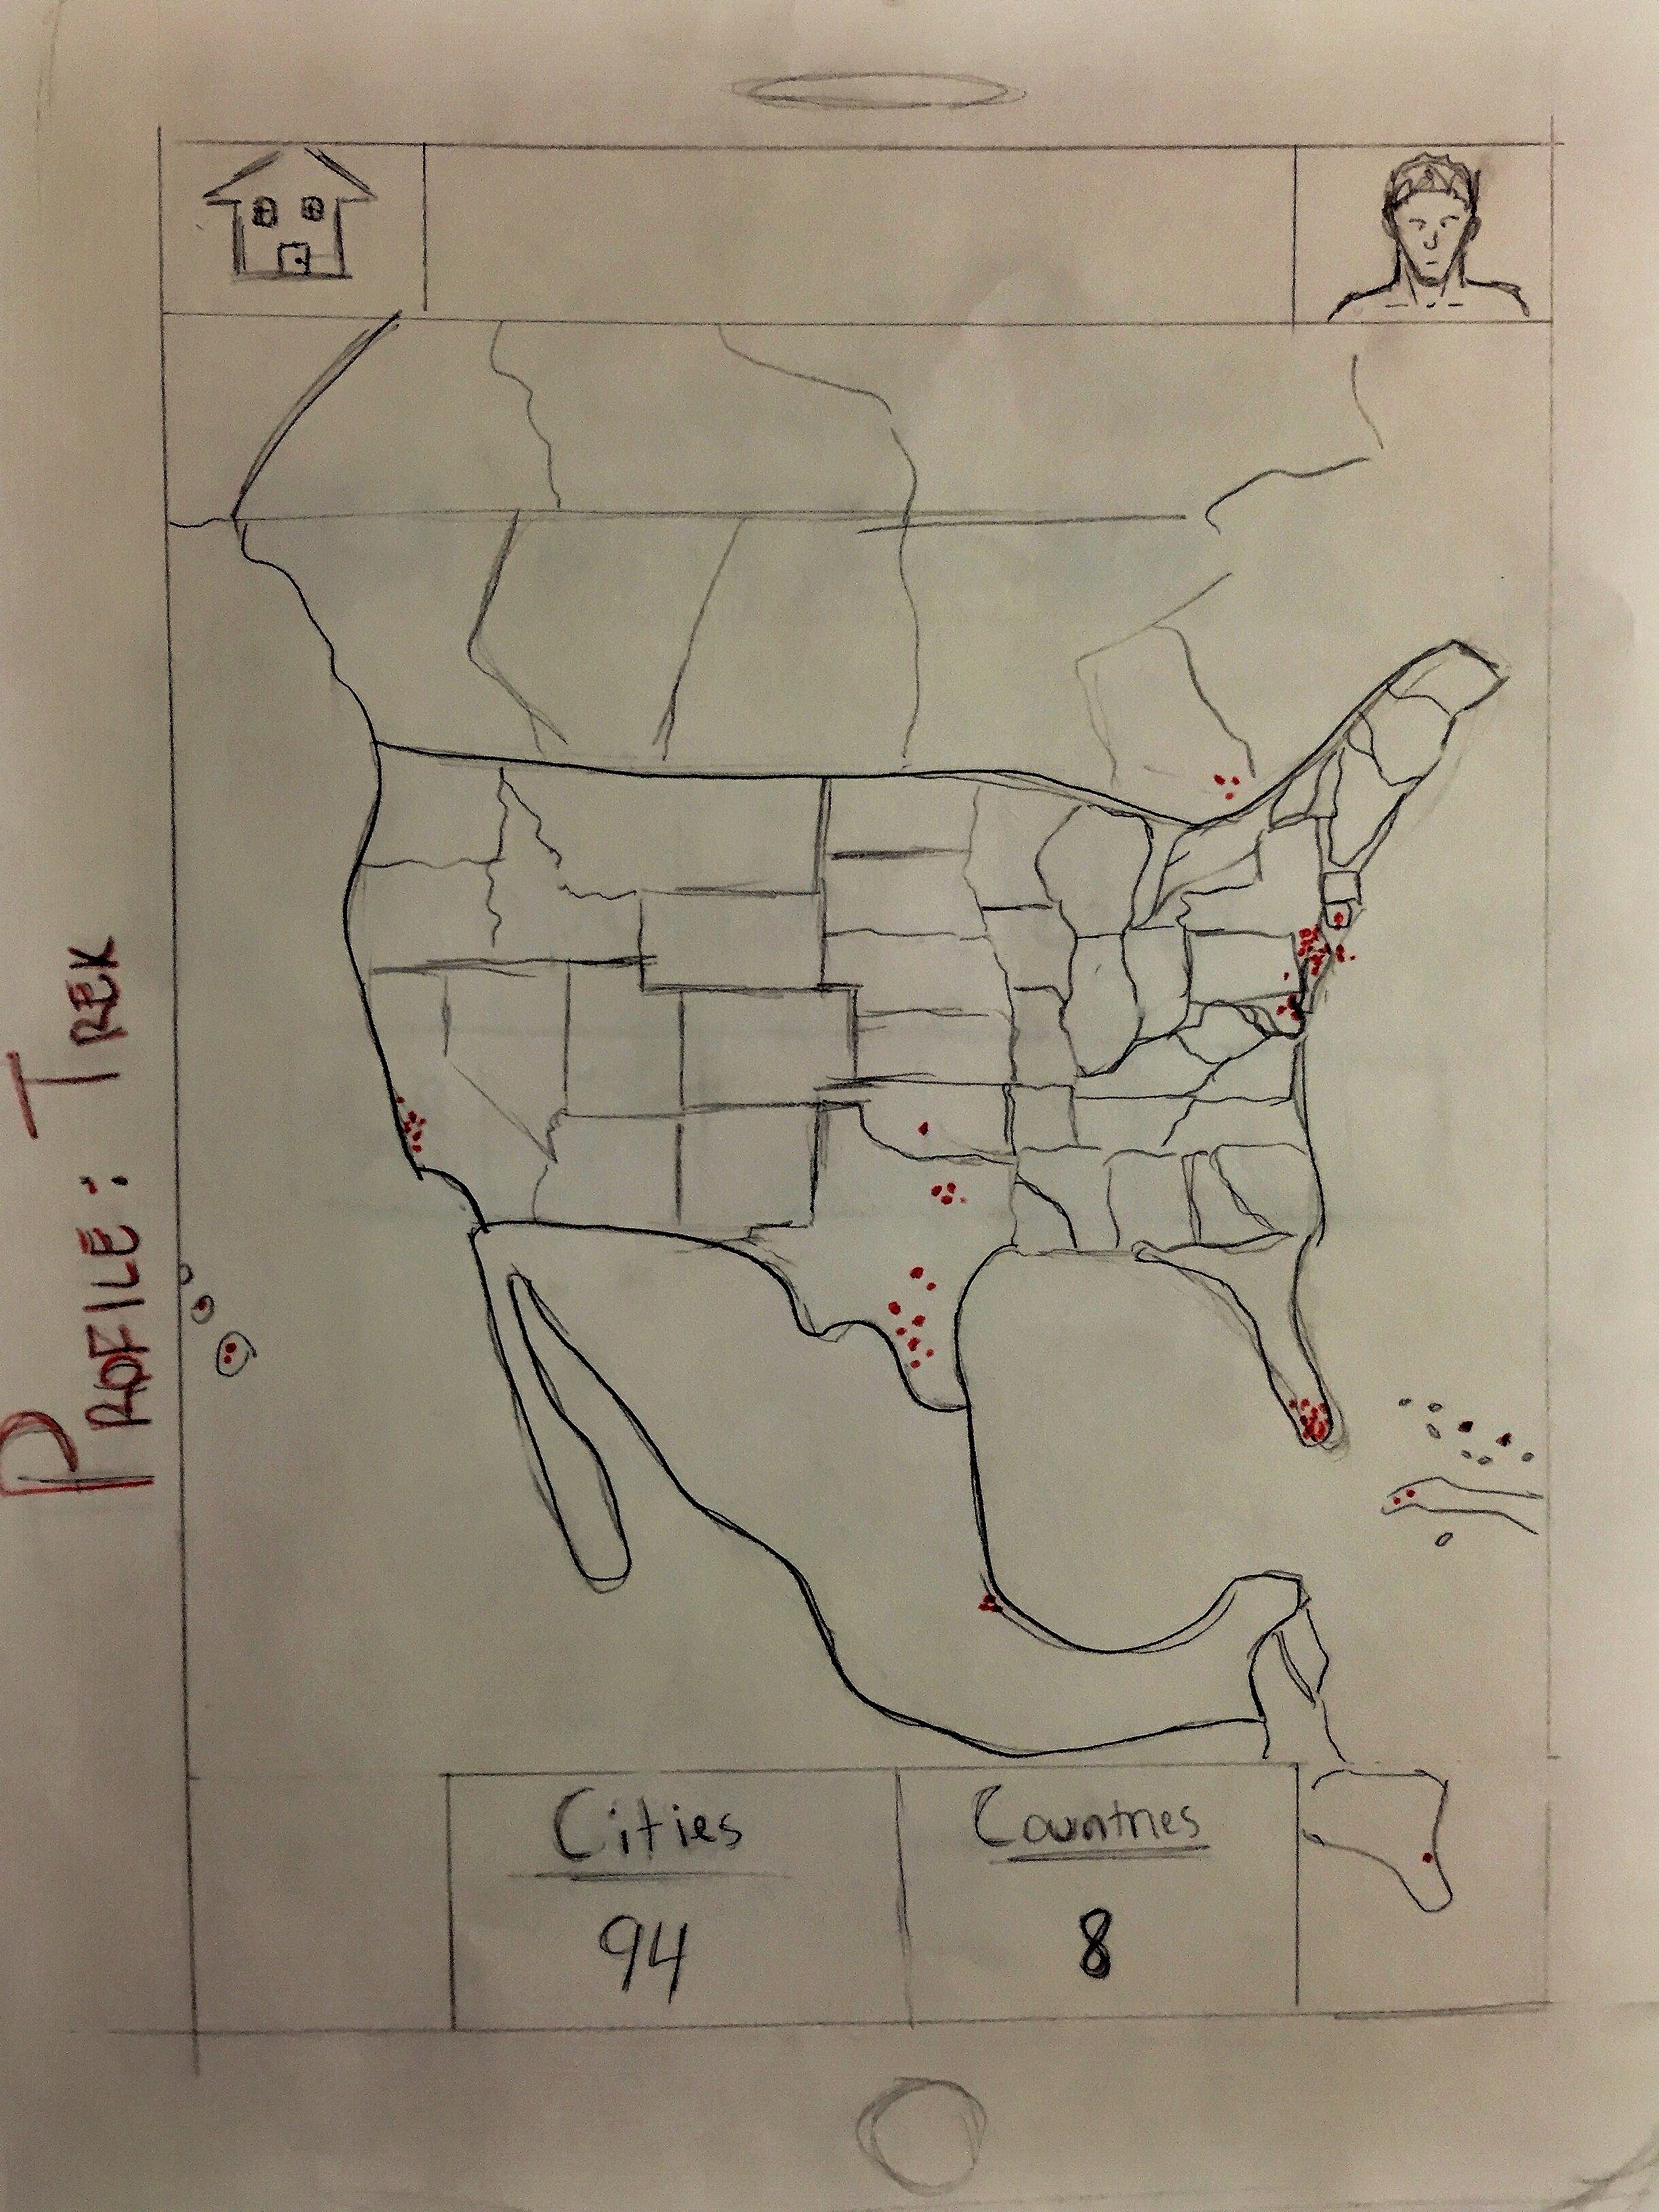 PROFILE: TREK
Cities
94
Countries
8